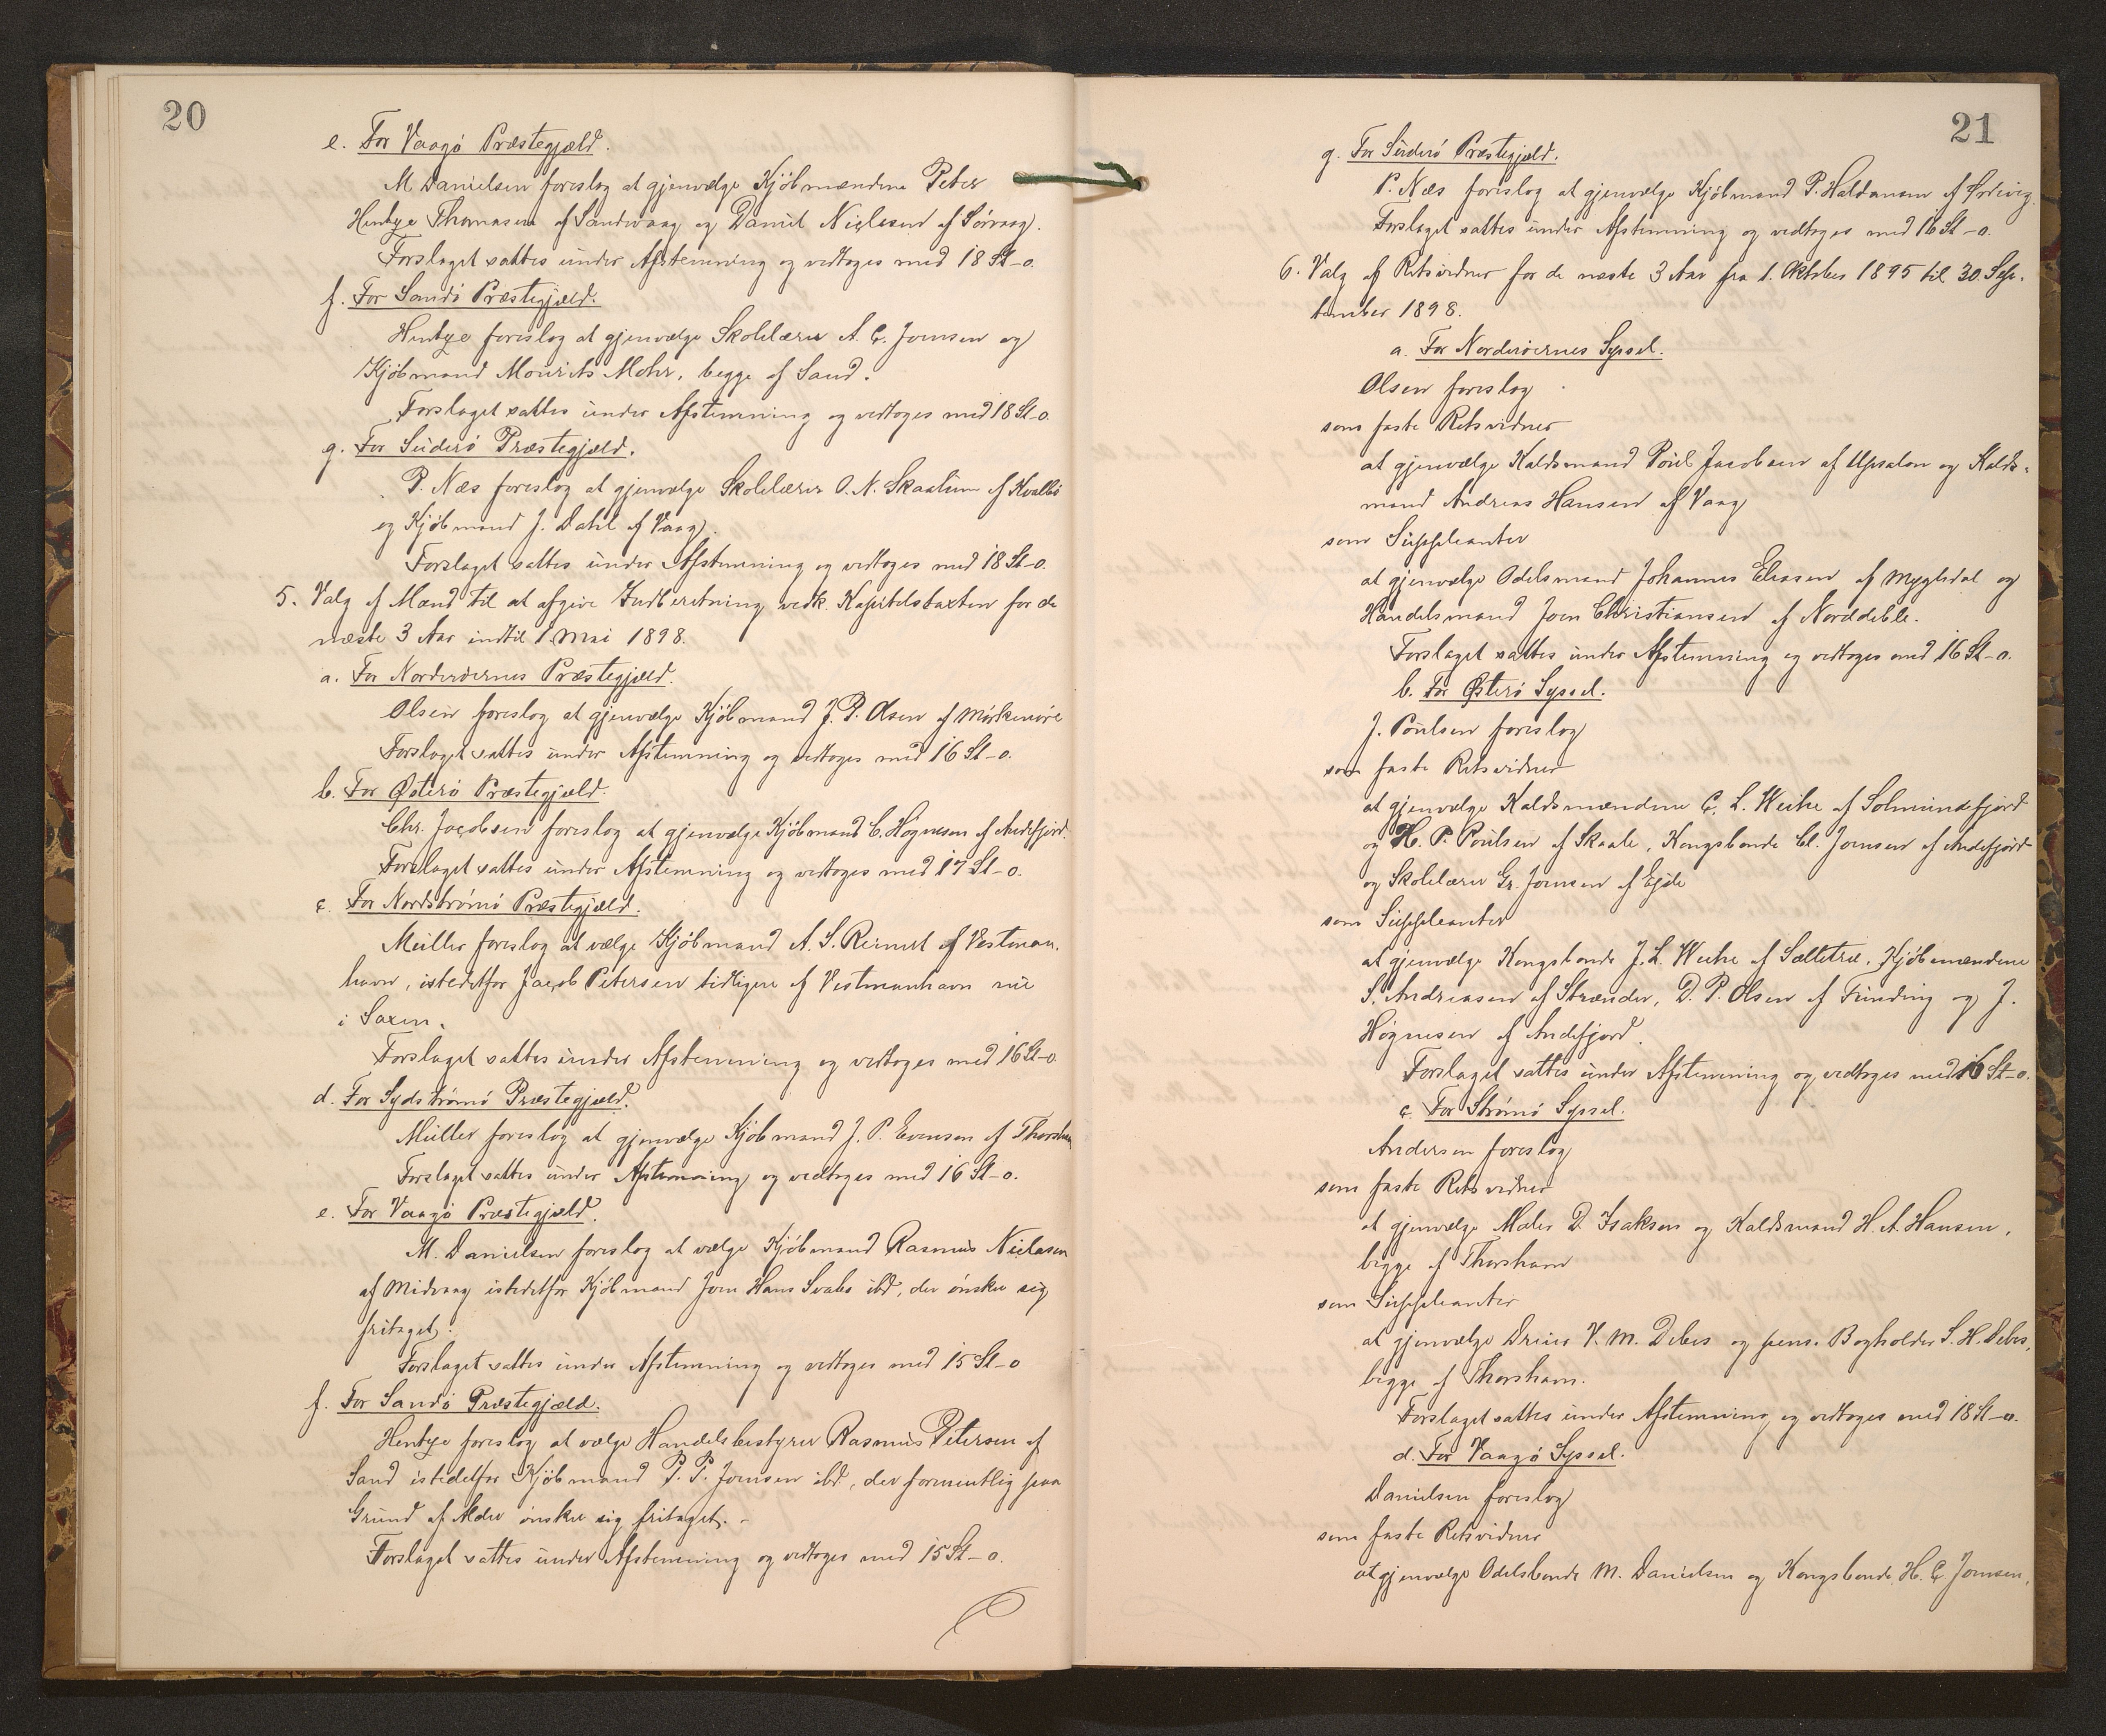 20
e. For Vaagö Præstegjæld.
M. Danielsen foreslog at gjenvælge Kjöbmændene Peter
Hentze Thomasen af Sandevaag og Daniel Niclasen af Sörvaag.
Forslaget sattes under Afstemning og vedtoges med 18 St-0.
f. For Sandö Præstegjæld.
Hentze foreslog at gjenvælge Skolelærer A. C. Joensen og
Kjöbmand Mourits Mohr, begge af Sand.
Forslaget sattes under Afstemning og vedtoges med 18 St-0.
g. For Suderö Præstegjæld.
P. Næs foreslog at gjenvælge Skolelærer O. N. Skaalum af Kvalbö
og Kjöbmand J. Dahl af Vaag.
Forslaget sattes under Afstemning og vedtoges med 18 St-0.
5. Valg af Mænd til at afgive Indberetning vedk. Kapitelstaxten for de
næste 3 Aar indtil 1. Mai 1898.
a. For Norderöernes Præstegjæld.
Olsen foreslog at gjenvælge Kjöbmand J. P. Olsen af Mörkenöre
Forslaget sattes under Afstemning og vedtoges med 16 St-0.
b. For Østerö Præstegjæld.
Chr. Jacobsen foreslog at gjenvælge Kjöbmand C. Högnesen af Andefjord.
Forslaget sattes under Afstemning og vedtoges med 17 St-0.
c. For Nordströmö Præstegjæld.
Müller foreslog at vælge Kjöbmand A. S. Reinert af Vestman-
havn, istedetfor Jacob Petersen tidligere af Vestmanhavn nu
i Saxen.
Forslaget sattes under Afstemning og vedtoges med 16 St-0
d. For Sydströmö Præstegjæld.
Müller foreslog at gjenvælge Kjöbmand J. P. Evensen af Thorshavn
Forslaget sattes under Afstemning og vedtoges med 16 St-0.
e. For Vaagö Præstegjæld.
M. Danielsen foreslog at vælge Kjöbmand Rasmus Niclasen
af Midvaag istedetfor Kjöbmand Joen Hans Svabo ibd, der önsker sig
fritaget.
Forslaget sattes under Afstemning og vedtoges med 15 St-0
f. For Sandö Præstegjæld.
Hentze foreslog at vælge Handelsbestyrer Rasmus Petersen af
Sand istedetfor Kjöbmand P. P. Joensen ibd, der formentlig paa
Grund af Alder önsker sig fritaget. -
Forslaget sattes under Afstemning og vedtoges med 15 St-0.
21
g. For Suderö Præstegjæld.
P. Næs foreslog at gjenvælge Kjöbmand P. Haldansen af Ørdevig.
Forslaget sattes under Afstemning og vedtoges med 16 St-0.
6. Valg af Retsvidner for de næste 3 Aar fra 1. Oktober 1895 til 30. Sep-
tember 1898.
a. For Norderöernes Syssel.
Olsen foreslog
som faste Retsvidner
at gjenvælge Kaldsmand Poul Jacobsen af Upsalen og Kalds-
mand Andreas Hansen af Vaag
som Suppleanter
at gjenvælge Odelsmand Johannes Eliasen af Mygledal og
Handelsmand Joen Christiansen af Norddeble.
Forslaget sattes under Afstemning og vedtoges med 16 St-0.
b. For Østerö Syssel.
J. Poulsen foreslog
som faste Retsvidner
at gjenvælge Kaldsmændene C. L. Weihe af Solmundefjord
og H. P. Poulsen af Skaale, Kongsbonde Cl. Joensen af Andefjord
og Skolelærer Gr. Joensen af Ejde
som Suppleanter
at gjenvælge Kongsbonde J. L. Weihe af Sæltetræ, Kjöbmændene
S. Andreasen af Strænder, D. P. Olsen af Funding og J.
Högnesen af Andefjord.
Forslaget sattes under Afstemning og vedtoges med 16 St-0.
c. For Strömö Syssel.
Andersen foreslog
som faste Retsvidner
at gjenvælge Maler D. Isaksen og Kaldsmand H. A. Hansen,
begge af Thorshavn
som Suppleanter
at gjenvælge Dreier V. M. Debes og pens. Bogholder S. H. Debes,
begge af Thorshavn.
Forslaget sattes under Afstemning og vedtoges med 18 St-0.
d. For Vaagö Syssel.
Danielsen foreslog
som faste Retsvidner
at gjenvælge Odelsbonde M. Danielsen og Kongsbonde H. C. Joensen,